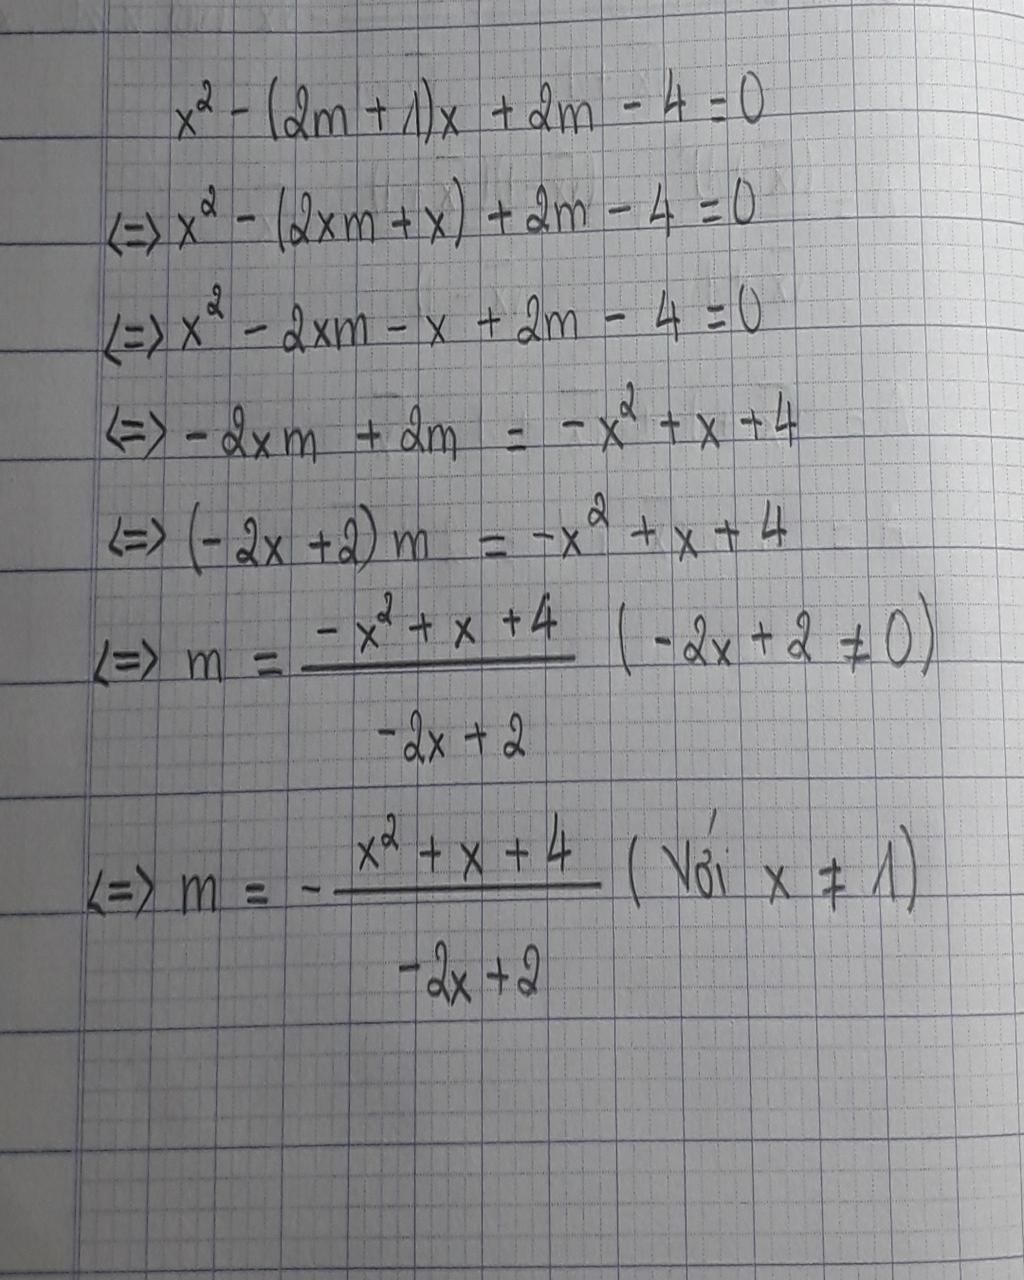 x² - (2m + 1)x + 2m - 4 = 0
<=> x² - (2xm + x) + 2m - 4 = 0
<=> x² - 2xm - x + 2m - 4 = 0
<=> - 2xm + 2m = - x² + x + 4
<=> (- 2x + 2) m = -x² + x + 4
<=> m = (- x² + x + 4)/(-2x + 2) ( -2x + 2 ≠ 0)
<=> m = - (x² + x + 4)/(-2x + 2) ( Với x ≠ 1)